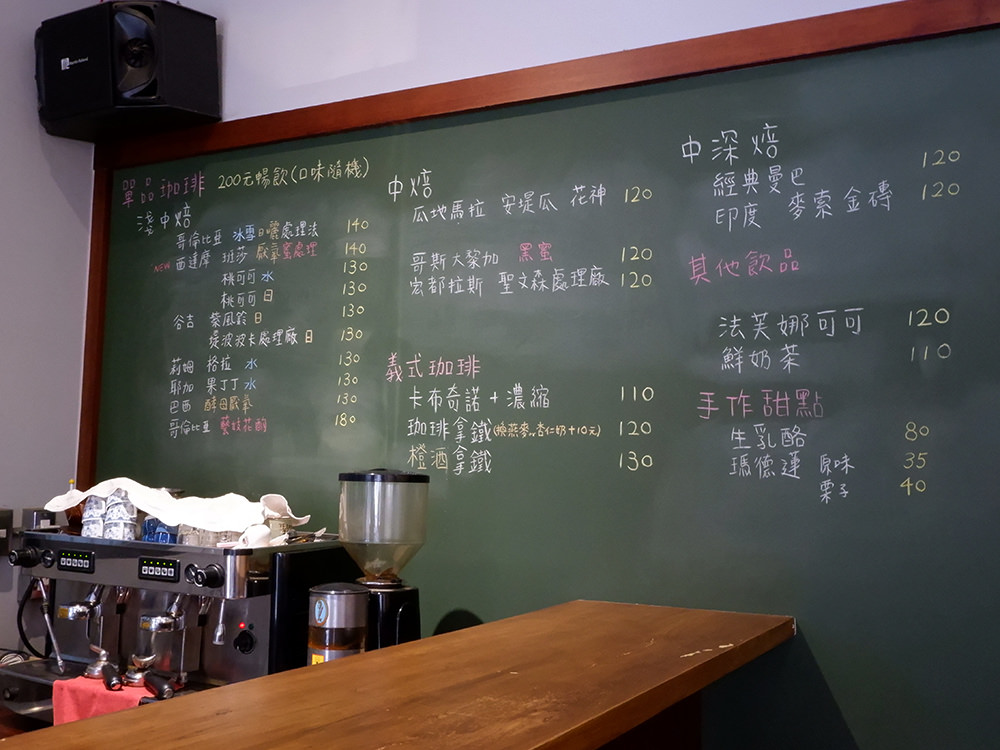 單品珈琲 200元暢飲(口味隨機)
淺中焙
哥倫比亞 冰雪日曬處理法 140
NEW 西達摩 班莎 厭氧蜜處理 140
桃可可 水 130
桃可可 日 130
谷吉 紫風鈴 日 130
堤波波卡處理廠 日 130
莉姆 格拉 水 130
耶加 果丁丁 水 130
巴西 酵母厭氧 130
哥倫比亞 藝妓花酒 180
中焙
瓜地馬拉 安堤瓜 花神 120
哥斯大黎加 黑蜜 120
宏都拉斯 聖文森處理廠 120
義式珈琲
卡布奇諾+濃縮 110
珈琲拿鐵(換燕麥or杏仁奶+10元) 120
橙酒拿鐵 130
中深焙
經典曼巴 120
印度 麥索金磚 120
其他飲品
法芙娜可可 120
鮮奶茶 110
手作甜點
生乳酪 80
瑪德蓮 原味 35
栗子 40